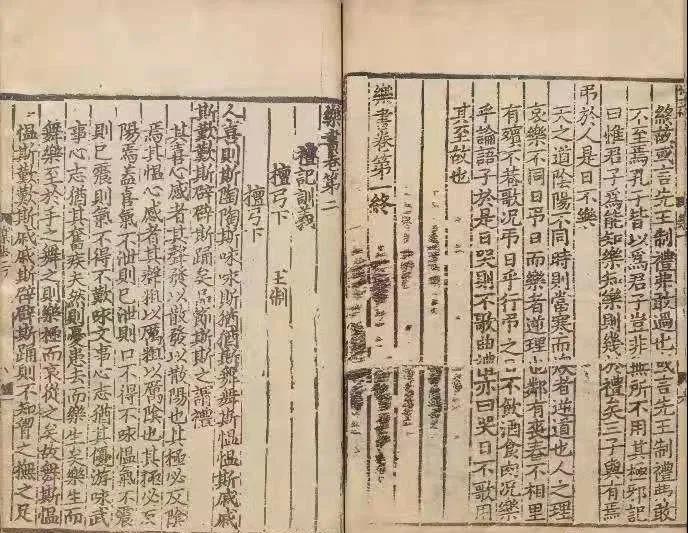 終故或言先王制禮弗敢過也或言先王制禮弗敢
不至焉孔子皆以爲君子豈非無所不用其極邪記
曰惟君子爲能知樂知樂則幾於禮矣三子與有焉
弔於人是日不樂
天之道陰陽不同時則當寒而燠者逆道也人之理
哀樂不同日弔日而樂者逆理也鄰有喪舂不相里
有殯不巷歌況弔日乎行弔之日不飲酒食肉況樂
乎論語子於是日哭則不歌曲禮亦曰哭日不歌用
其至故也
樂書卷第一終
樂書卷第二
禮記訓義
檀弓下 王制
檀弓下
人喜則斯陶陶斯咏咏斯猶猶斯舞舞斯慍慍斯戚戚
斯歎歎斯辟辟斯踊矣品節斯斯之謂禮
其喜心感者其聲發以散發以散陽也其極必反陰
焉其怒心感者其聲粗以厲粗以厲陰也其極必反
陽焉蓋喜氣不泄則已泄則口不得不咏慍氣不震
則已震則氣不得不歎咏文事心志猶其優游咏武
事心志猶其奮疾夫然則憂患去而樂生矣樂生而
舞樂至於手之舞之則樂極而哀從之矣故舞斯慍
慍斯歎歎斯戚戚斯辟辟斯踊則不知胷之撫之足